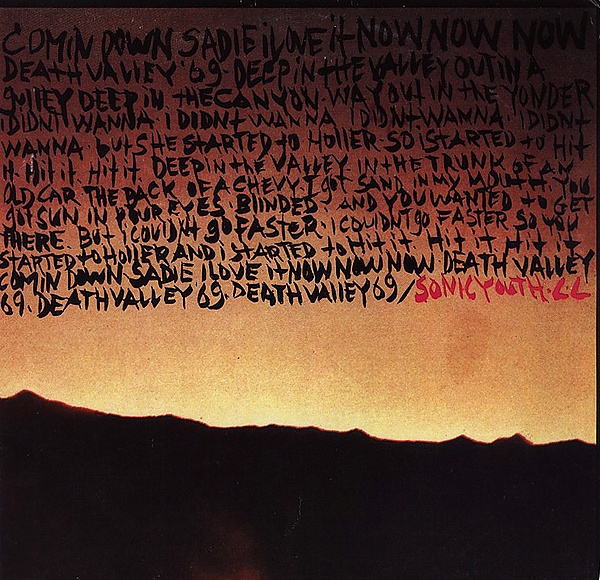 COMIN DOWN SADIE i LOVE it NOW NOW NOW
DEATH VALLEY '69. DEEP iN tHE VALLEY OUT iN A
gULLEY DEEP iN. tHE CANYON. WAY OUt iN tHE YONDER
i DiDNt WANNA. i DiDNt WANNA i DiDNt WANNA. i DiDNt
WANNA. but SHE StARtED to HOllER. SO i StARtED to Hit
it Hit it Hit it. DEEP iN tHE VALLEY iN tHE tRUNK OF AN
OLD CAR tHE BACK OF A CHEVY i gOt SAND iN MY MOUtH. YOU
gOt SUN iN YOUR EYES BliNDED. AND YOU WANtED to GEt
tHERE. But i COUlDNt gO FAStER. i COUlDNt gO FAStER SO YOU
StARtED to HOllER AND i StARtED to Hit it. Hit it. Hit it
COMiN DOWN SADIE i LOVE it NOW NOW NOW DEATH VALLEY
69. DEATH VALLEY 69. DEATH VALLEY 69/SONiC YOUtH. LL